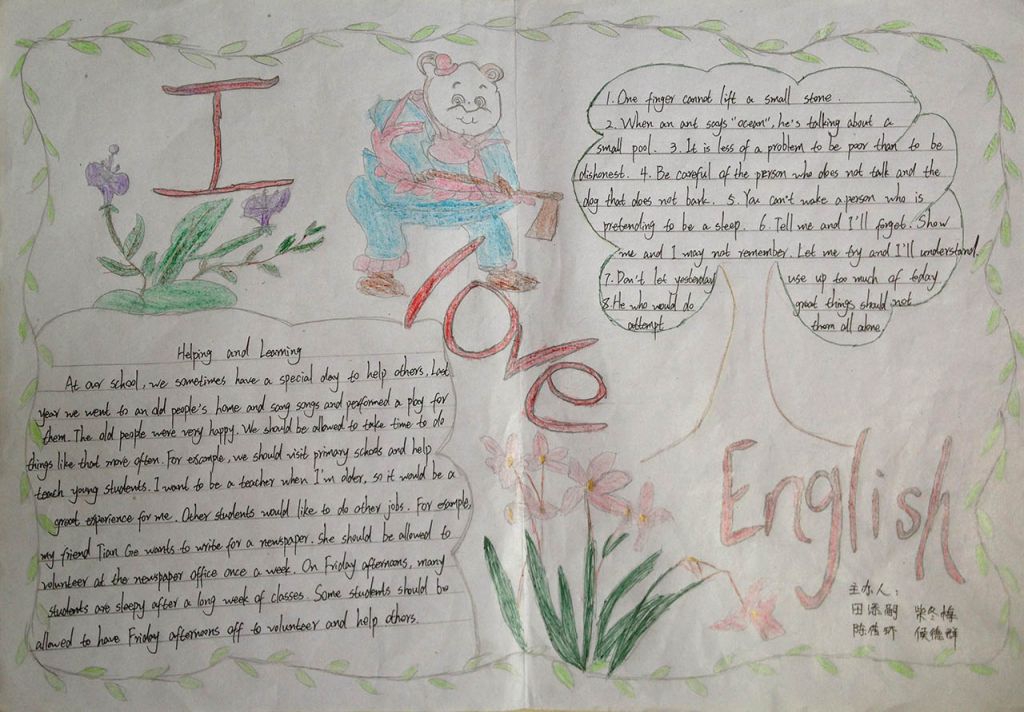 I
love
English
1. One finger cannot lift a small stone.
2. When an ant says "ocean", he's talking about a
small pool. 3. It is less of a problem to be poor than to be
dishonest. 4. Be careful of the person who does not talk and the
dog that does not bark. 5. You can't wake a person who is
pretending to be a sleep. 6. Tell me and I'll forget. Show
me and I may not remember. Let me try and I'll understand.
7. Don't let yesterday use up too much of today
8. He who would do great things should not
attempt them all alone
Helping and Learning
At our school, we sometimes have a special day to help others. Last
year we went to an old people's home and sang songs and performed a play for
them. The old people were very happy. We should be allowed to take time to do
things like that more often. For example, we should visit primary schools and help
teach young students. I want to be a teacher when I'm older, so it would be a
great experience for me. Other students would like to do other jobs. For example,
my friend Tian Ge wants to write for a newspaper. She should be allowed to
volunteer at the newspaper office once a week. On Friday afternoons, many
students are sleepy after a long week of classes. Some students should be
allowed to have Friday afternoons off to volunteer and help others.
主办人：